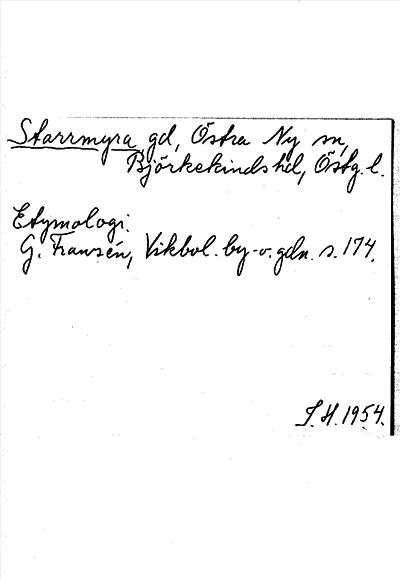 Starrmyra gd, Östra Ny sn,
Björkekinds hd, Östg. l.
Etymologi.
G. Franzén, Vikbol. by- o. gdn. s. 174.
S. H. 1954.